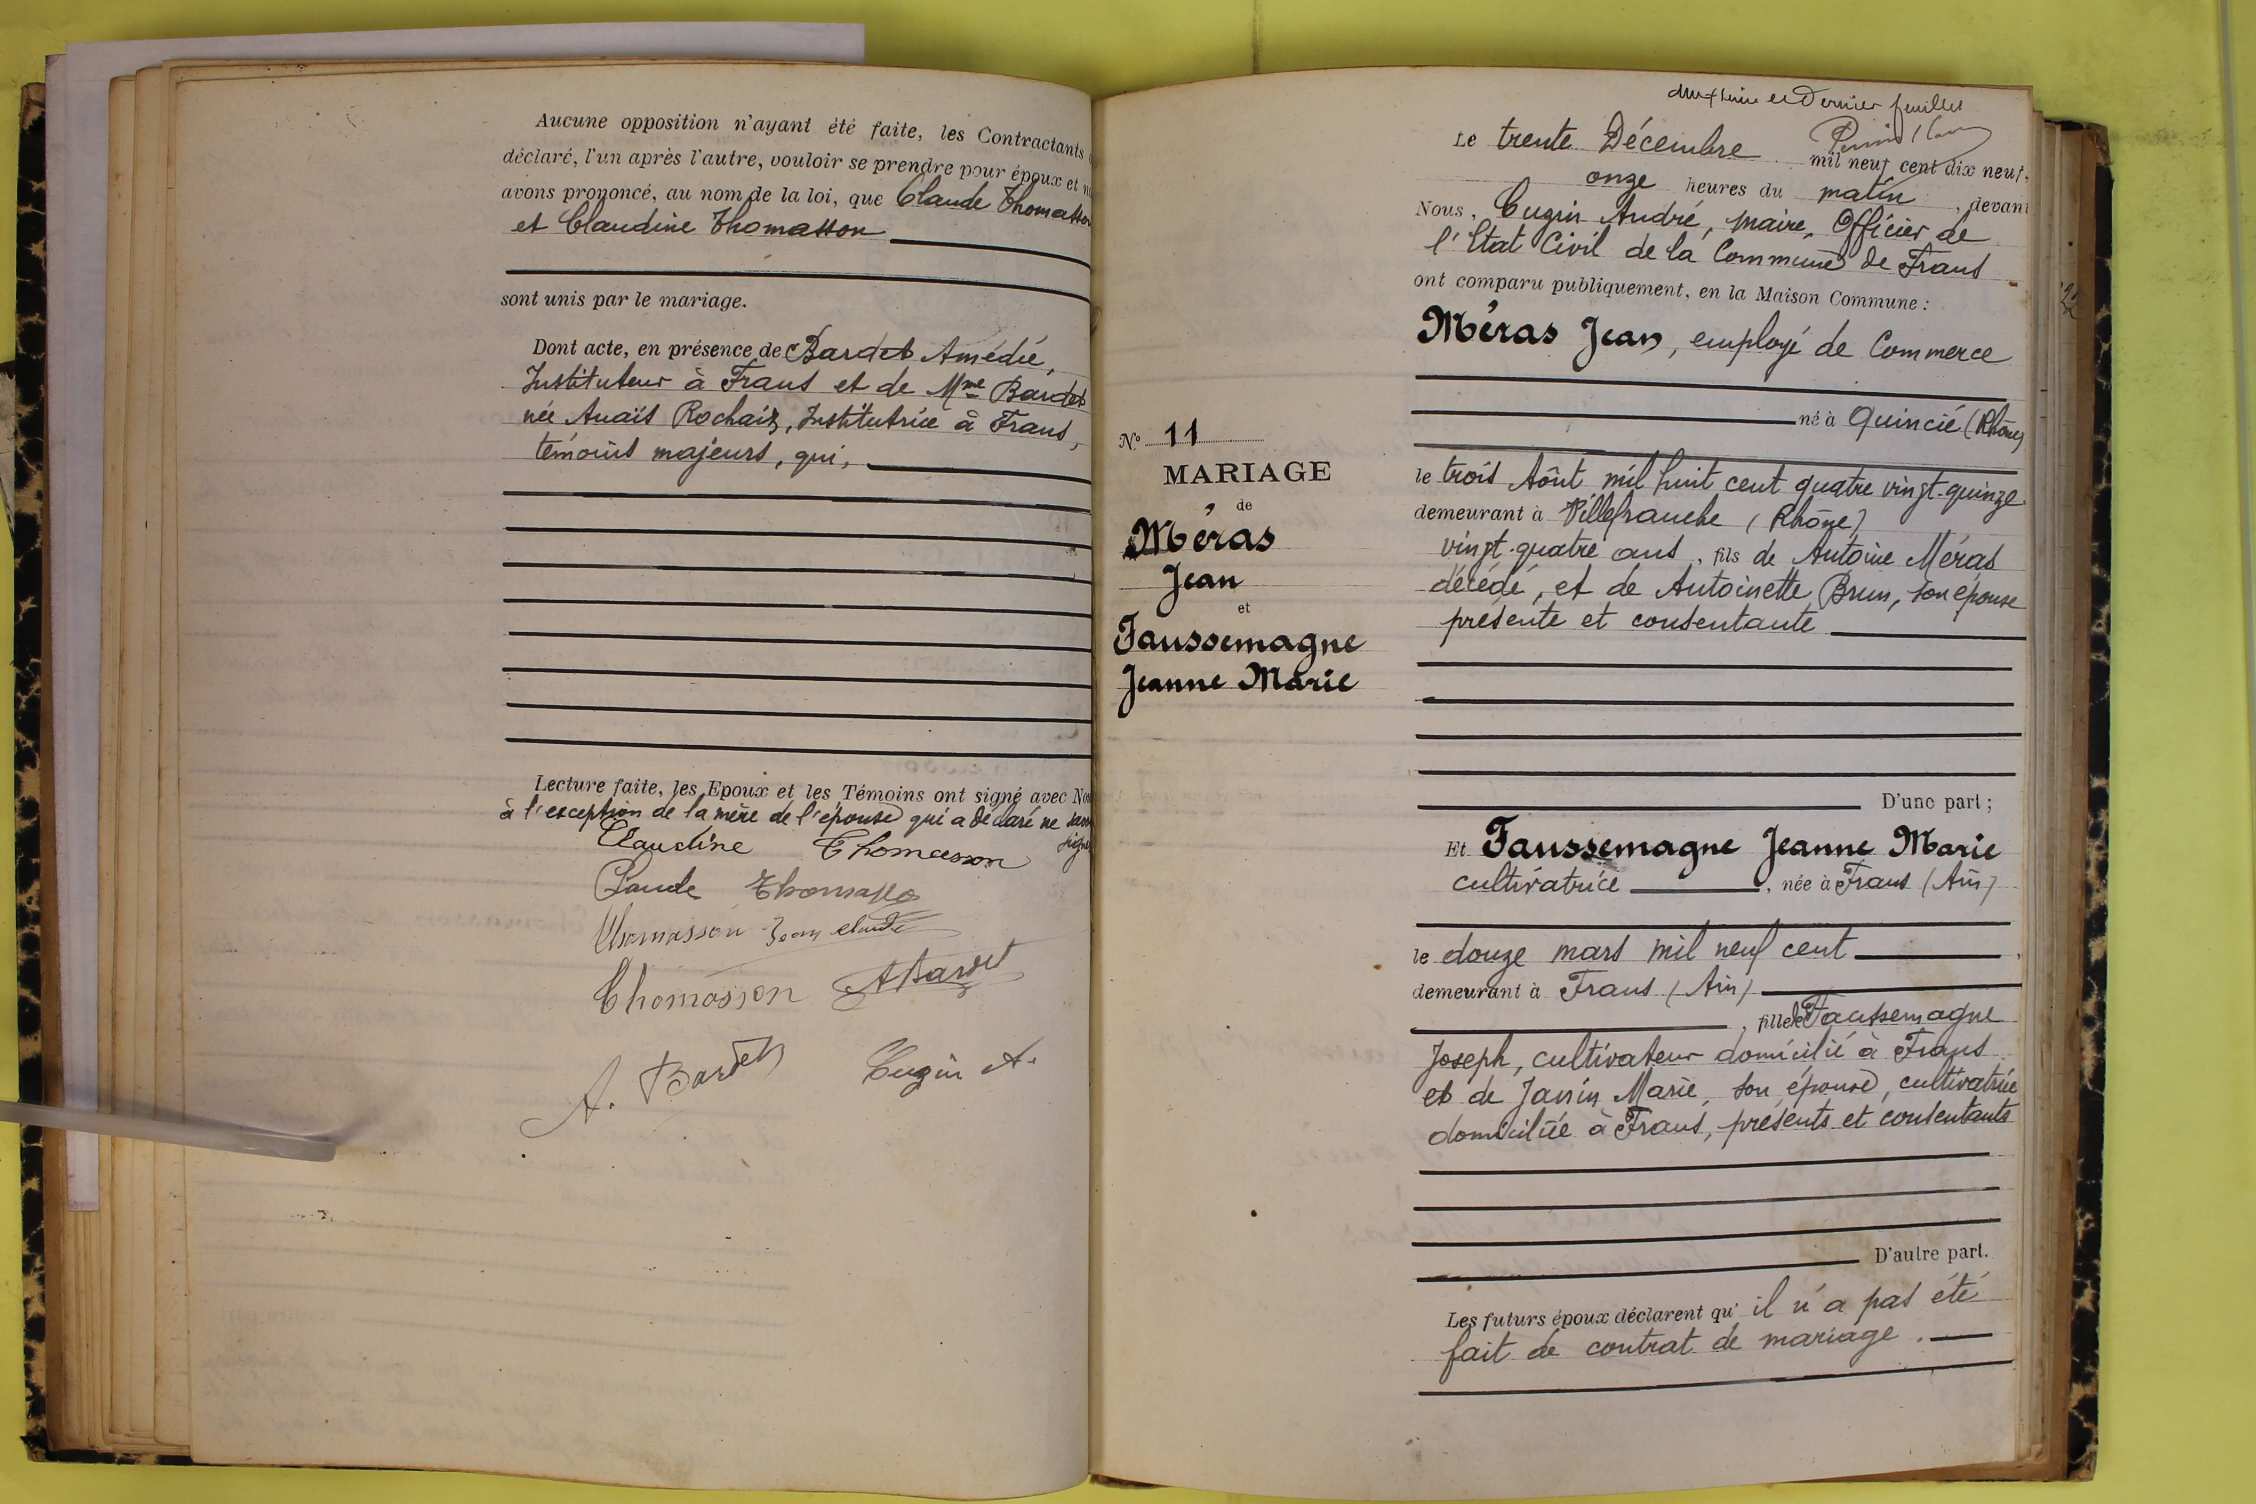 Aucune opposition n'ayant été faite, les Contractants
déclaré, l'un après l'autre, vouloir se prendre pour époux et
avons prononcé, au nom de la loi, que Claude Thomasson
et Claudine Thomasson
sont unis par le mariage.
Dont acte, en présence de Bardet Amédée,
Instituteur à Frans et de Mme Bardet
née Anaïs Rochaix, Institutrice à Frans,
témoins majeurs, qui,
Lecture faite, les Epoux et les Témoins ont signé avec
à l'exception de la mère de l'épouse qui a déclaré ne
Claudine Thomasson
Claude Thomasso
Thomasson Jean Claude
Thomasson A Bardet
A. Bardet Cugin A.
et Dernier feuillet
Le trente Décembre mil neuf cent dix neuf,
onze heures du matin, devant
Nous, Cugin André, maire, Officier de
l'Etat Civil de la Commune de Frans
ont comparu publiquement, en la Maison Commune :
Méras Jean, employé de Commerce
né à Quincié (Rhône)
le trois Août mil huit cent quatre vingt-quinze
demeurant à Villefranche (Rhône)
vingt-quatre ans, fils de Antoine Méras
décédé, et de Antoinette Brun, son épouse
présente et consentante
D'une part ;
No 11
MARIAGE
de
Méras
Jean
et
Faussemagne
Jeanne Marie
Et Faussemagne Jeanne Marie
cultivatrice, née à Frans (Ain)
le douze mars mil neuf cent
demeurant à Frans (Ain)
, fille de Faussemagne
Joseph, cultivateur domicilié à Frans
et de Janin Marie, son épouse, cultivatrice
domiciliée à Frans, présents et consentants
D'autre part.
Les futurs époux déclarent qu'il n'a pas été
fait de contrat de mariage.